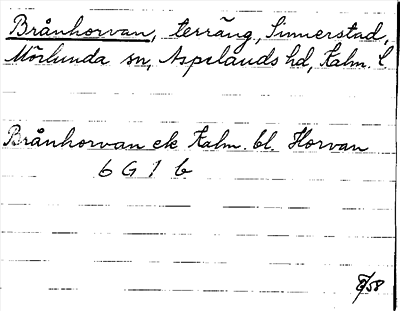 Brånhorvan, terräng, Sinnerstad,
Mörlunda sn, Aspelands hd, Kalm. l
Brånhorvan ek Kalm. bl. Horvan
6 G 1 b
/58